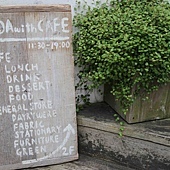 DA with CAFE
11:30-19:00
FE
LUNCH
DRINK
DESSERT
FOOD
GENERAL STORE
DAIRYWEAR
FABRIC
STATIONARY
FURNITURE
GREEN
2F